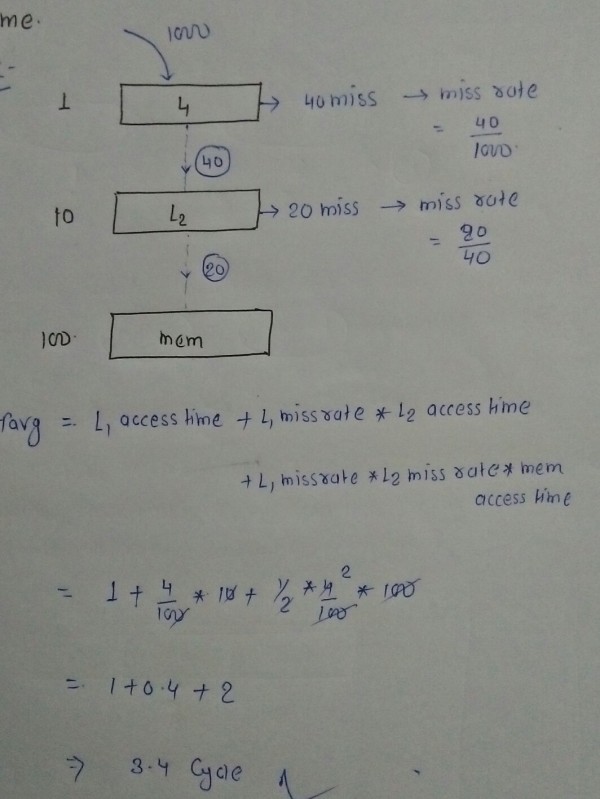 me.
1000
1 L1 → 40 miss → miss rate
= 40/1000
40
10 L2 → 20 miss → miss rate
= 20/40
20
100 mem
Tavg = L1 access time + L1 miss rate * L2 access time
+ L1 miss rate * L2 miss rate * mem
access time
= 1 + 4/100 * 10 + 1/2 * 4/100 2 * 100
= 1 + 0.4 + 2
⇒ 3.4 Cycle